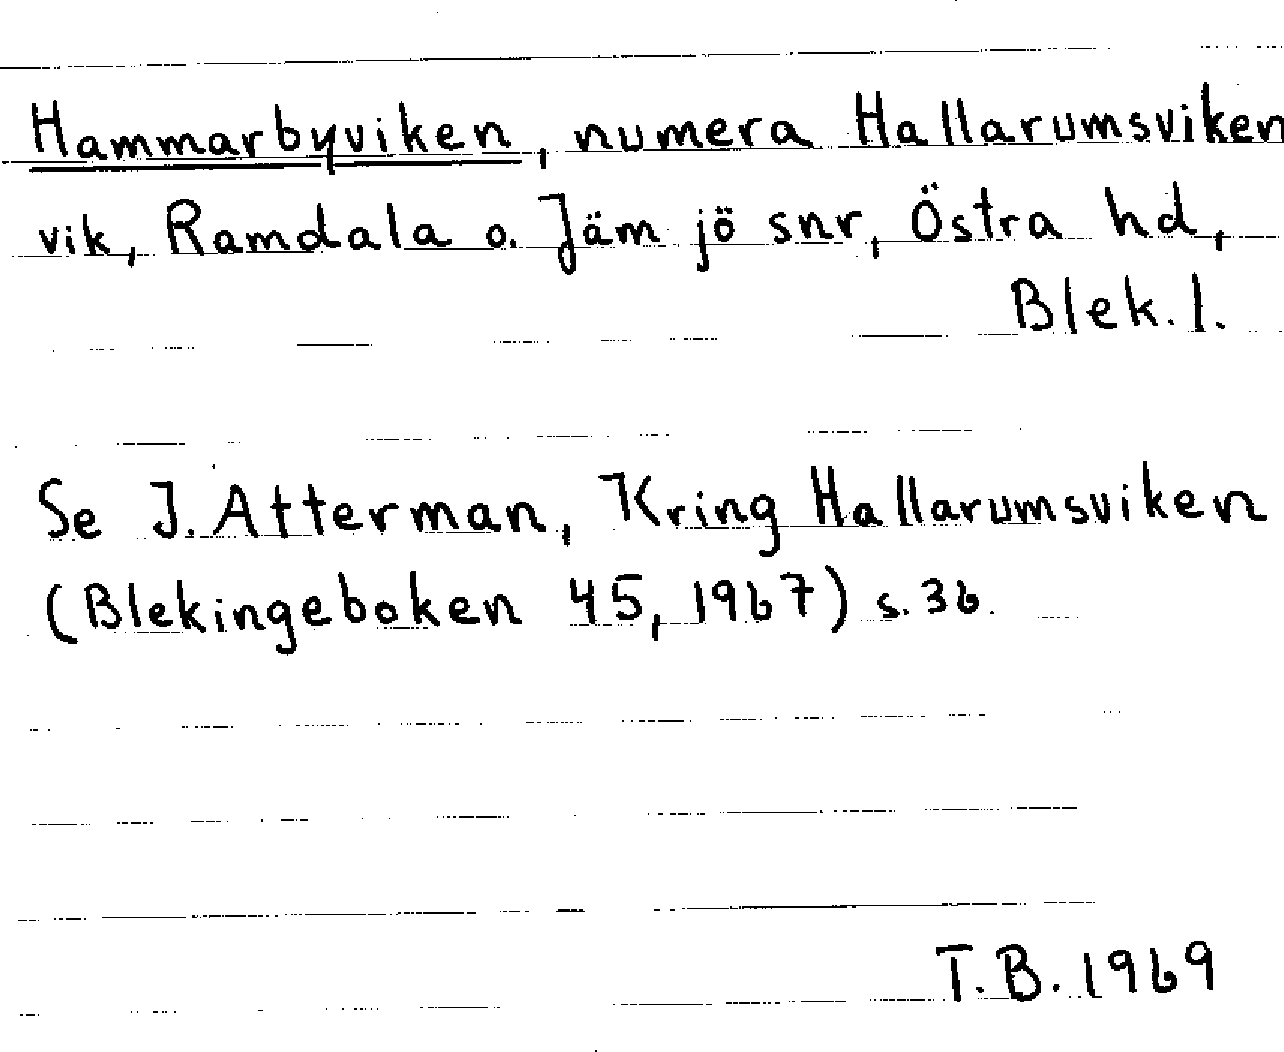 Hammarbyviken, numera Hallarumsviken
vik, Ramdala o. Jämjö snr, Östra hd,
Blek. l.
Se I. Atterman, Kring Hallarumsviken
(Blekingeboken 45, 1967) s. 36.
T.B. 1969